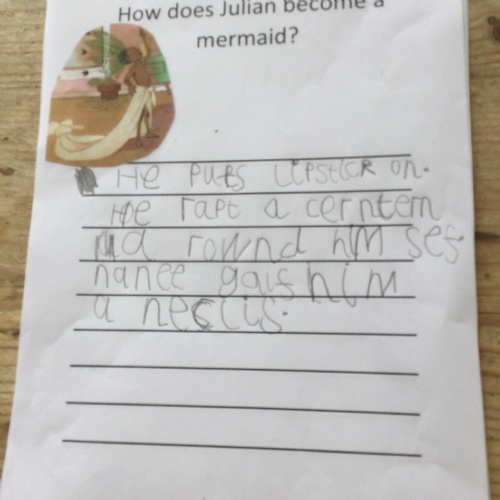 How does Julian become a
mermaid?
He puts lipstick on.
He rapt a cerntern
rownd him sef
nanee gais him
a neclis.